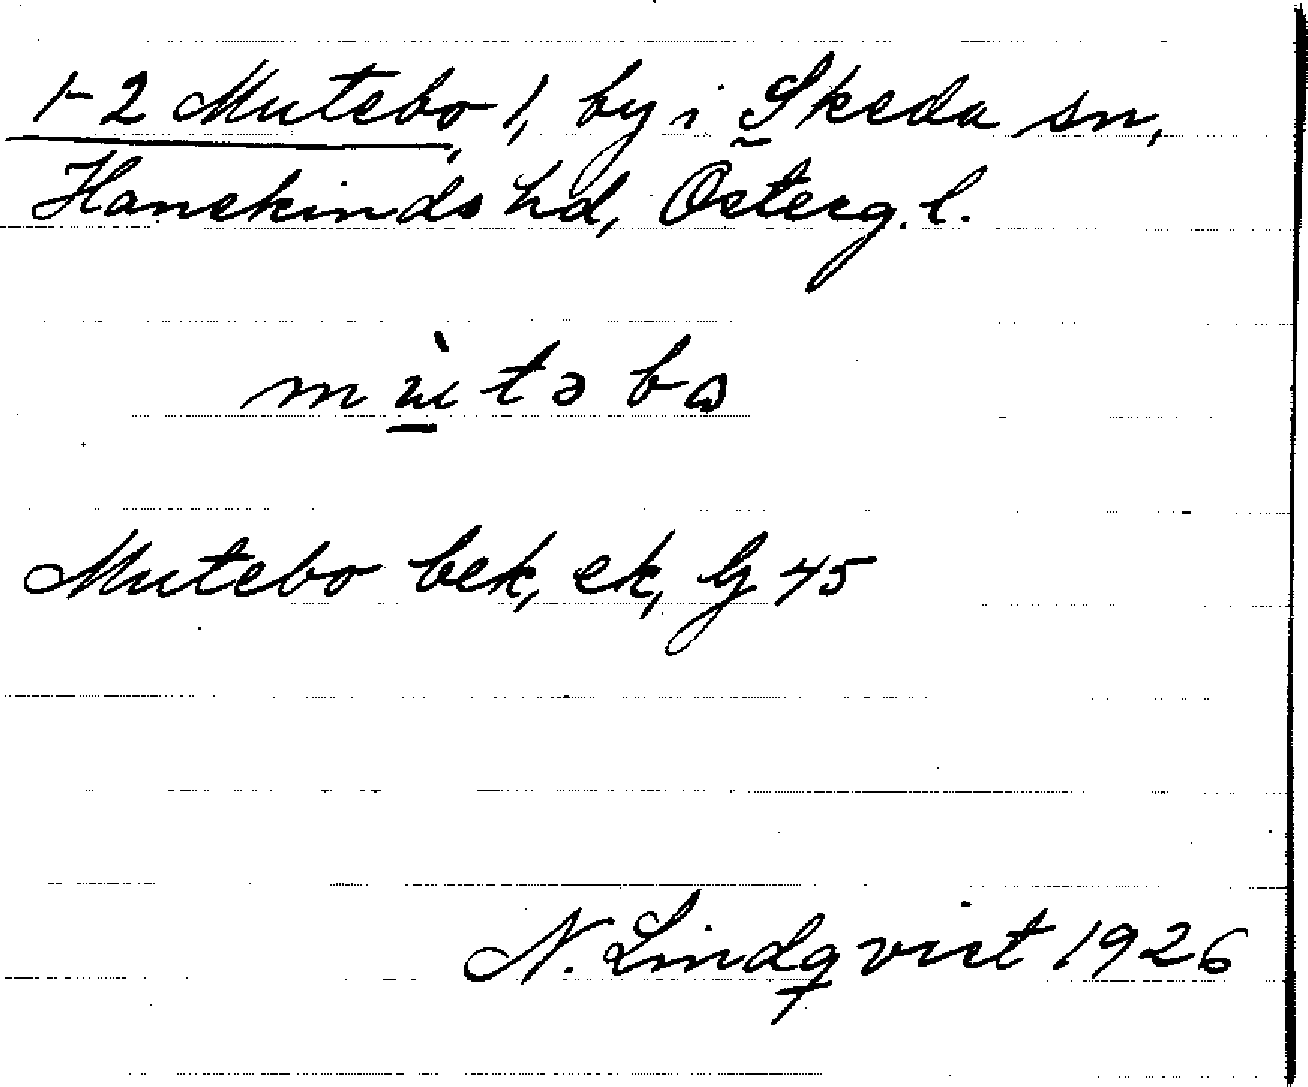 1-2 Mutebo 1, by i Skeda sn,
Hanekinds hd, Österg. l.
mù̠təbɷ
Mutebo bek, ek, Gj 45
N. Lindqvist 1926